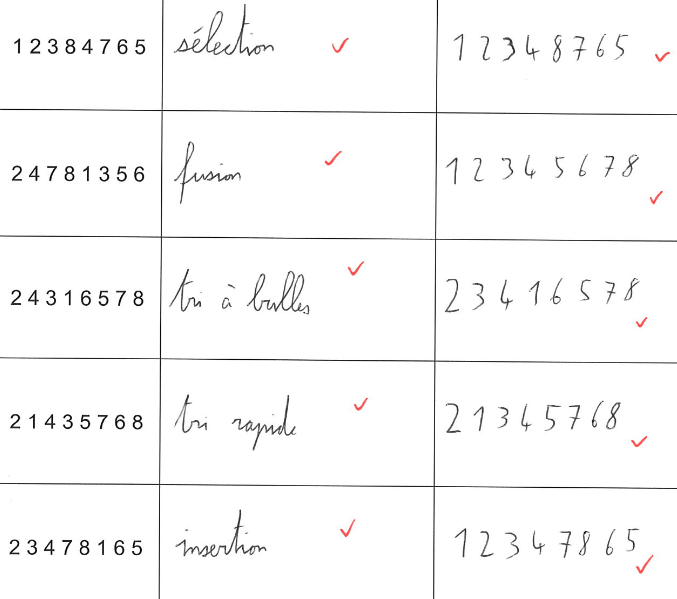 12384765 sélection 12348765
24781356 fusion 12345678
24316578 tri à bulles 23416578
21435768 tri rapide 21345768
23478165 insertion 12347865